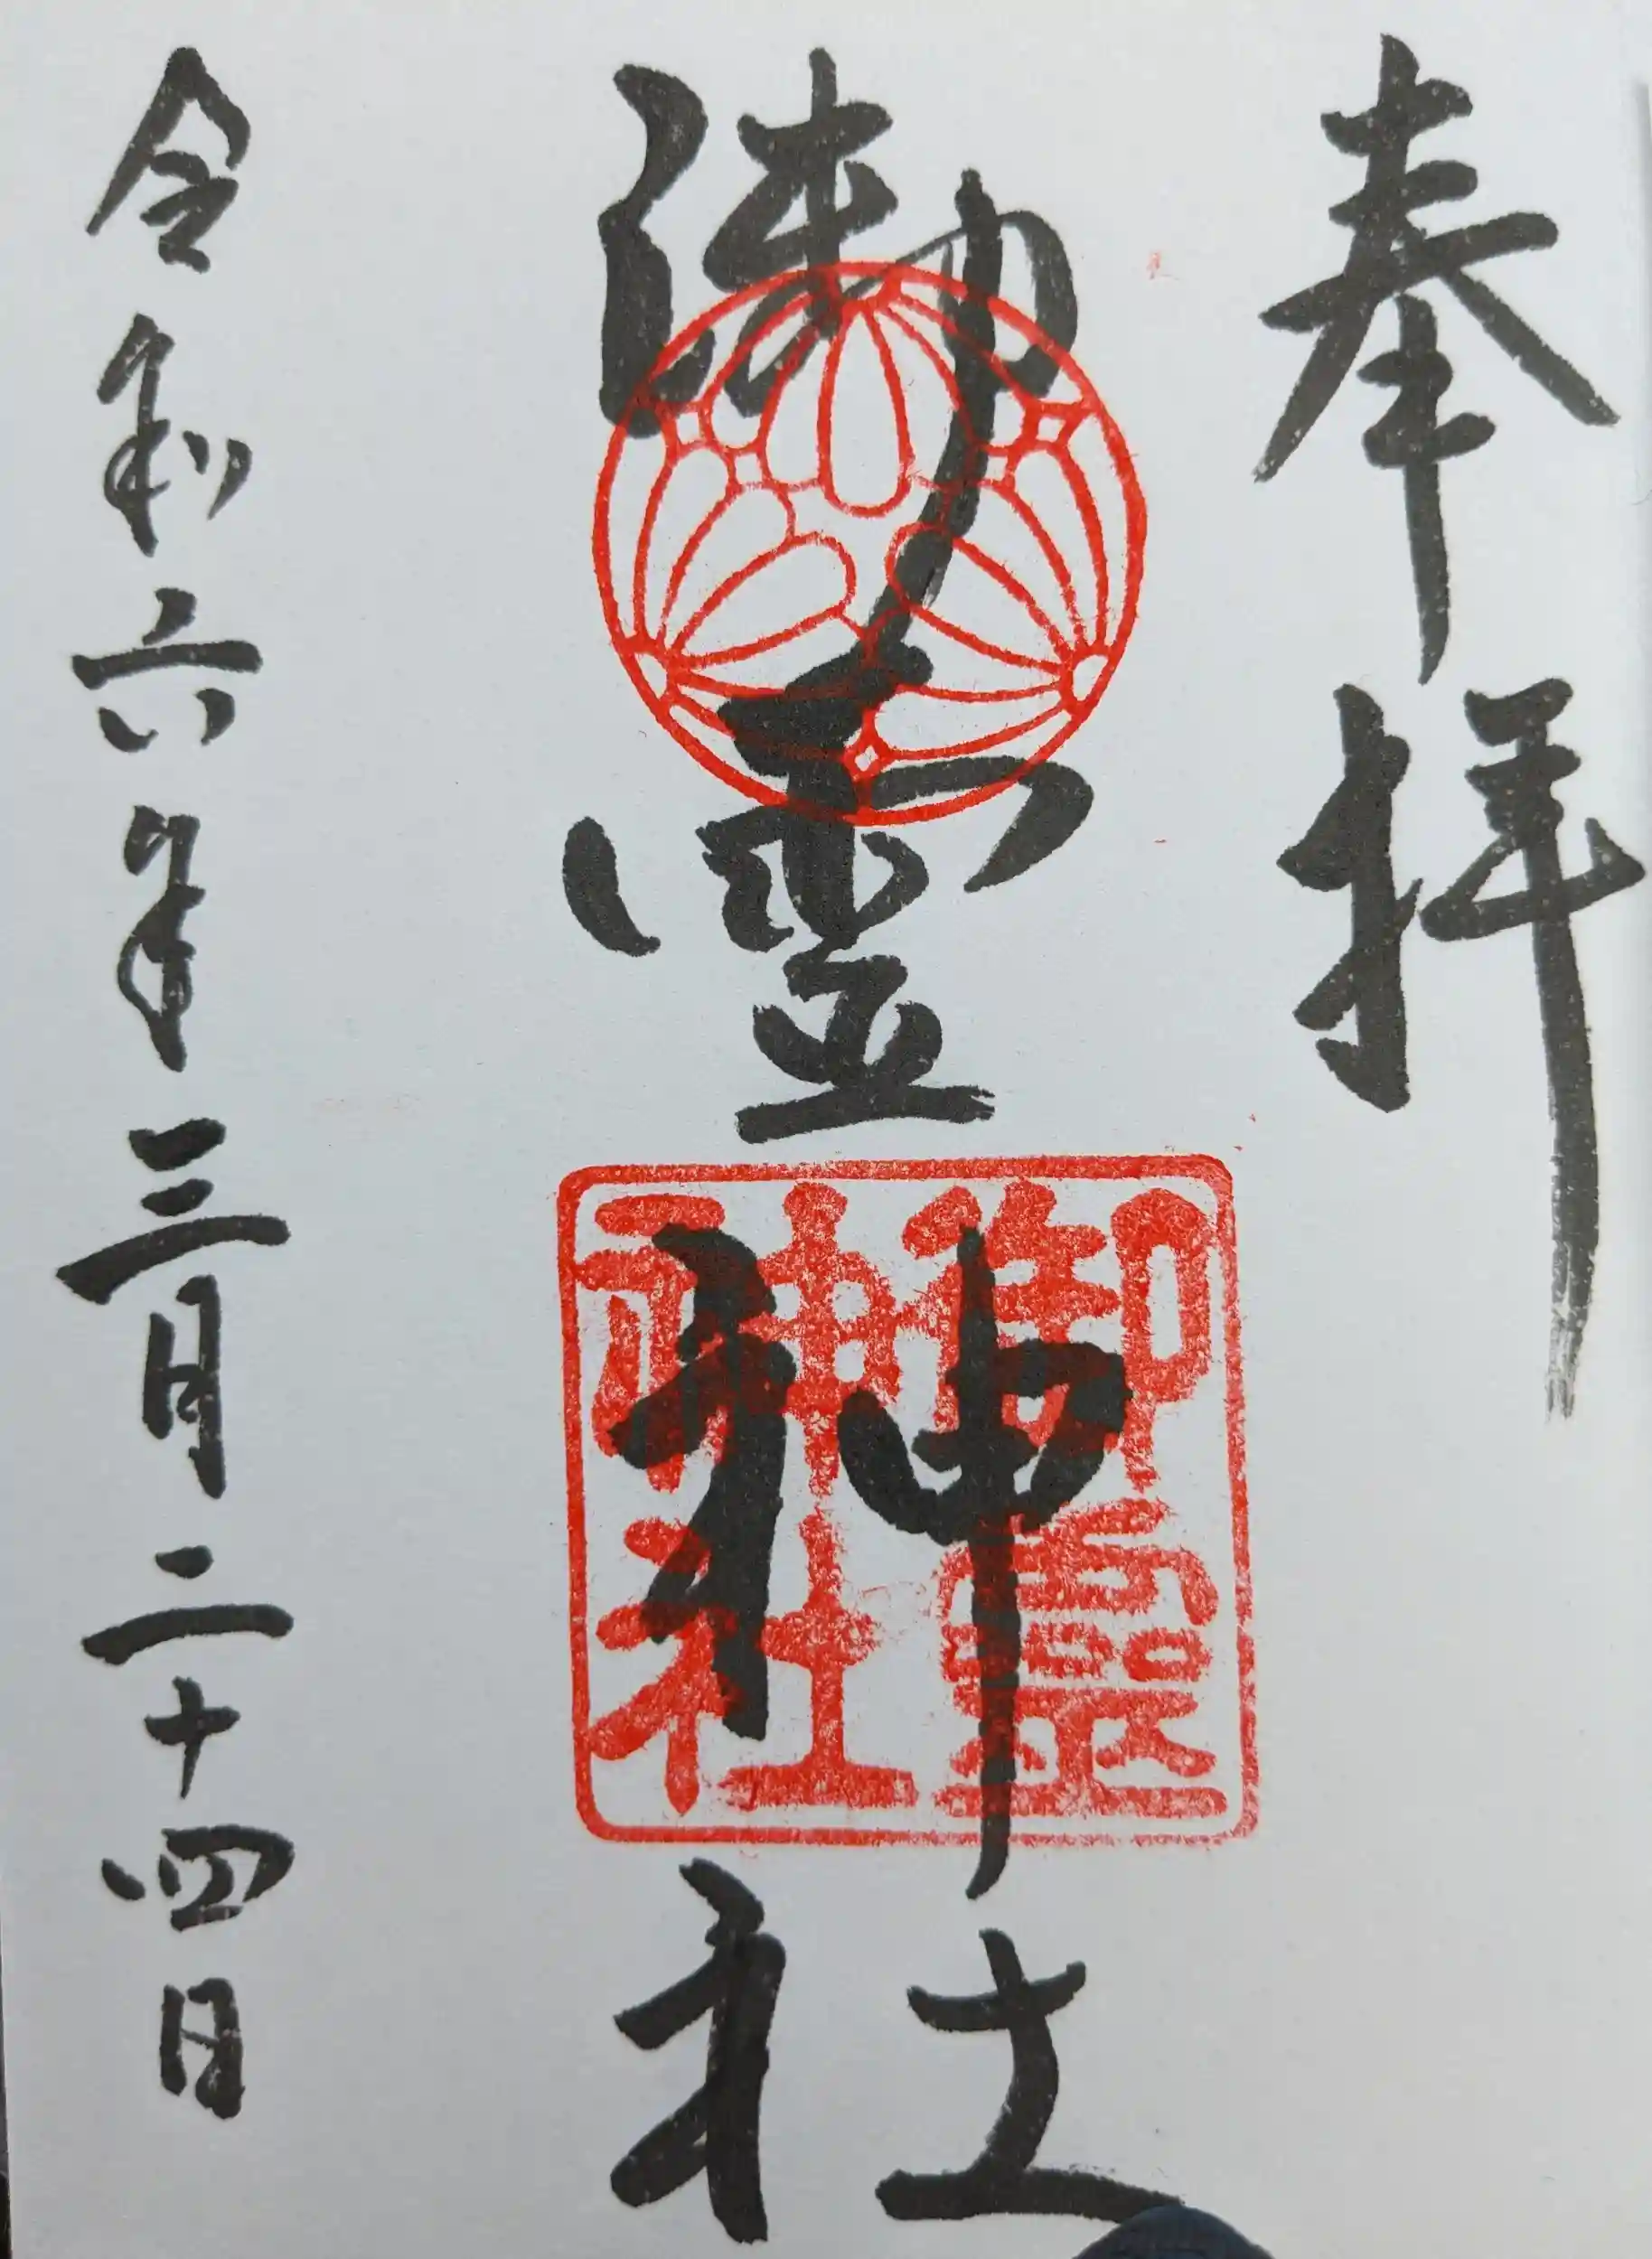 奉拝
御霊神社
御霊神社
令和六年三月二十四日